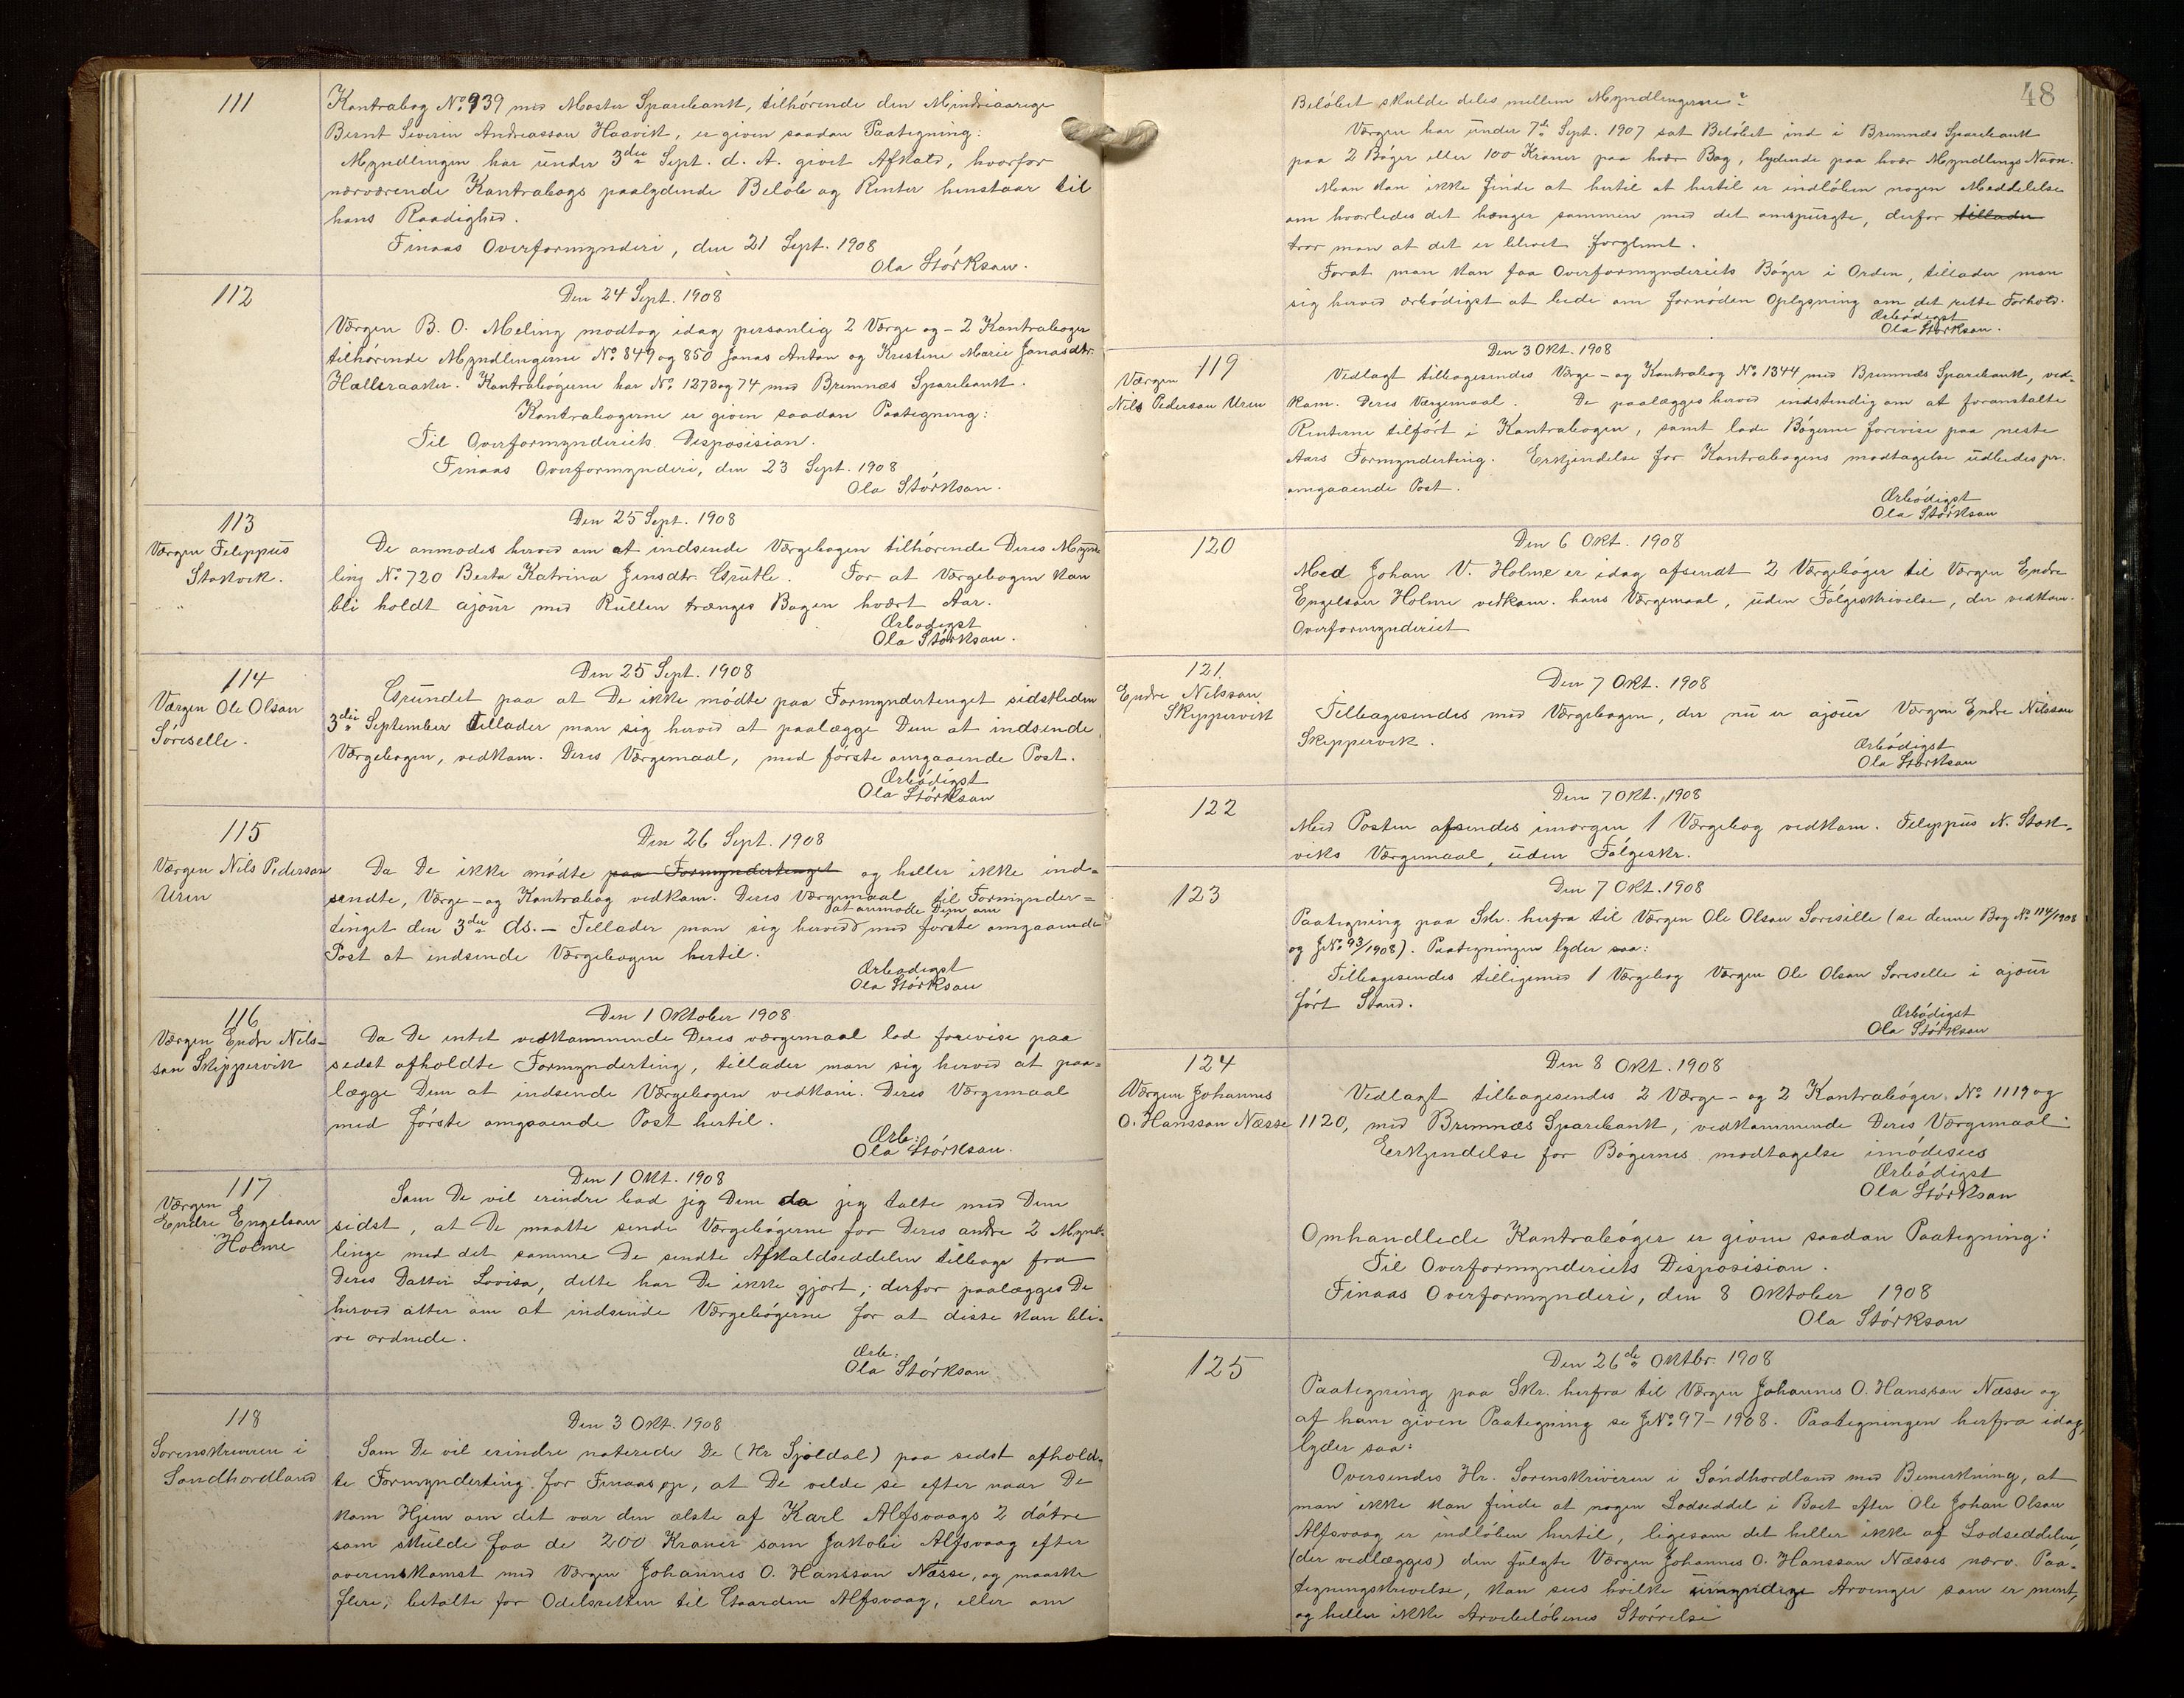 111
Kontrabog No. 939 med Moster Sparebank, tilhørende den Mindreaarige
Bernt Severin Andreasson Haavik, er given saadan Paategning:
Myndlingen har under 3die Sept. d. A. givet Afkald, hvorfor
nærværende Kontrabogs paalydende Beløb og Renter henstaar til
hans Raadighed.
Finaas Overformynderi, den 21 Sept. 1908
Ola Størkson.
112
Den 24 Sept. 1908
Værgen B. O. Meling modtog idag personlig 2 Værge og - 2 Kontrabøger
tilhørende Myndlingerne No. 849 og 850 Jonas Anton og Kristine Marie Jonasdtr.
Hallsraaker. Kontrabøgerne har No. 1273 og 74 med Bremnæs Sparebank.
Kontrabøgerne er given saadan Paategning:
Til Overformynderiets Disposision.
Finaas Overformynderi, den 23 Sept. 1908
Ola Størkson.
113
Værgen Filippus
Stokvik.
Den 25 Sept. 1908
De anmodes herved om at indsende Værgebogen tilhørende Deres Mynd-
ling No. 720 Berta Katrina Jensdtr. Grutle. For at Værgebogen kan
bli holdt ajour med Rullen trænges Bogen hvært Aar.
Ærbødigst
Ola Størkson.
114
Værgen Ole Olson
Søreselle.
Den 25 Sept. 1908
Grundet paa at De ikke mødte paa Formyndertinget sidstleden
3die September tillader man sig herved at paalægge Dem at indsende
Værgebogen, vedkom. Deres Værgemaal, med første omgaaende Post.
Ærbødigst
Ola Størkson
115
Værgen Nils Pederson
Uren
Den 26 Sept. 1908
Da De ikke mødte paa Formyndertinget og heller ikke ind-
sendte, Værge - og Kontrabog vedkom. Deres Værgemaal til Formynder-
at anmode Dem om
tinget den 3die ds. - Tillader man sig herved med første omgaaende
Post at indsende Værgebogen hertil.
Ærbødigst
Ola Størkson
116
Værgen Endre Nils-
son Skippervik
Den 1 Oktober 1908
Da De intet vedkommende Deres værgemaal lod forevise paa
sedst afholdte Formynderting, tillader man sig herved at paa-
lægge Dem at indsende Værgebogen vedkom. Deres Værgemaal
med første omgaaende Post hertil.
Ærb:
Ola Størkson.
117
Værgen
Endre Engelson
Holme
Den 1 Okt. 1908
Som De vil erindre bad jeg Dem da jeg talte med Dem
sidst, at De maatte sende Værgebøgerne for Deres andre 2 Mynd-
linge med det samme De sendte Afkaldseddelen tilbage fra
Deres Datter Lovisa, dette har De ikke gjort; derfor paalægges De
herved atter om at indsende Værgebøgerne for at disse kan bli-
ve ordnede.
Ærb:
Ola Størkson
118
Sorenskriveren i
Søndhordland
Den 3 Okt. 1908
Som De vil erindre noterede De (Hr Sjoldal) paa sedst afhold-
te Formynderting for Finaas op, at De velde se efter naar De
kom Hjem om det var den ælste af Karl Alfsvaags 2 døtre
som skulde faa de 200 Kroner som Jakobi Alfsvaag efter
overenskomst med Værgen Johannes O. Hansson Næsse, og maaske
flere, betalte for Odelsretten til Gaarden Alfsvaag, eller om
48
Beløbet skulde deles mellem Myndlingerne?
Værgen har under 7de Sept. 1907 sat Beløbet ind i Bremnæs Sparebank
paa 2 Bøger eller 100 Kroner paa hvær Bog, lydende paa hvær Myndlings Navn.
Man kan ikke finde at hertil at hertil er indløben nogen Meddelelse
om hvorledes det hænger sammen med det omspurgte, derfor tillader
tror man at det er blevet forglemt.
Forat man kan faa Overformynderiets Bøger i Orden, tillader man
sig herved ærbødigst at bede om fornøden Oplysning om det rette Forhold.
Ærbødigst
Ola Størkson.
119
Værgen
Nils Pederson Uren
Den 3 Okt. 1908
Vedlagt tilbagesendes Værge - og Kontrabog No. 1344 med Bremnæs Sparebank, ved-
kom. Deres Værgemaal. De paalægges herved indstendig om at foranstalte
Renterne tilført i Kontrabogen, samt lade Bøgerne forevise paa neste
Aars Formynderting. Erkjendelse for Kontrabogens modtagelse udbedes pr.
omgaaende Post.
Ærbødigst
Ola Størkson
120
Den 6 Okt. 1908
Med Johan V. Holme er idag afsendt 2 Værgebøger til Værgen Endre
Engelson Holme vedkom. hans Værgemaal, uden Følgeskrivelse, der vedkom.
Overformynderiet
121.
Endre Nilsson
Skippervik
Den 7 Okt. 1908
Tilbagesendes med Værgebogen, der nu er ajour Værgen Endre Nilsson
Skippervik.
Ærbødigst
Ola Størkson
122
Den 7 Okt. 1908
Med Posten afsendes imorgen 1 Værgebog vedkom. Filippus N. Stok-
viks Værgemaal, uden Følgeskr.
123
Den 7 Okt. 1908
Paategning paa Skr. herfra til Værgen Ole Olson Søreselle (se denne Bog No. 114/1908
og JNo. 93/1908). Paategningen lyder saa:
Tilbagesendes tilligemed 1 Værgebog Værgen Ole Olson Søreselle i ajour
ført Stand.
Ærbødigst
Ola Størkson
124
Værgen Johannes
O. Hansson Næsse
Den 8 Okt. 1908
Vedlagt tilbagesendes 2 Værge - og 2 Kontrabøger. No. 1119 og
1120, med Bremnæs Sparebank, vedkommende Deres Værgemaal.
Erkjendelse for Bøgernes modtagelse imødesees
Ærbødigst
Ola Størkson
Omhandlede Kontrabøger er given saadan Paategning:
Til Overformynderiets Disposision.
Finaas Overformynderi, den 8 Oktober 1908
Ola Størkson
125
Den 26de Oktbr. 1908
Paategning paa Skr. herfra til Værgen Johannes O. Hansson Næsse og
af ham given Paategning se JNo. 97 - 1908. Paategningen herfra idag,
lyder saa:
Oversendes Hr. Sorenskriveren i Søndhordland med Bemerkning, at
man ikke kan finde at nogen Lodseddel i Boet efter Ole Johan Olson
Alfsvaag er indløben hertil, ligesom det heller ikke af Lodseddelen,
(der vedlægges) den fulgte Værgen Johannes O. Hansson Næsses nærv. Paa-
tegningskrivelse, kan sees hvilke umyndige Arvinger som er ment,
og heller ikke Arvebeløbenes Størrelse